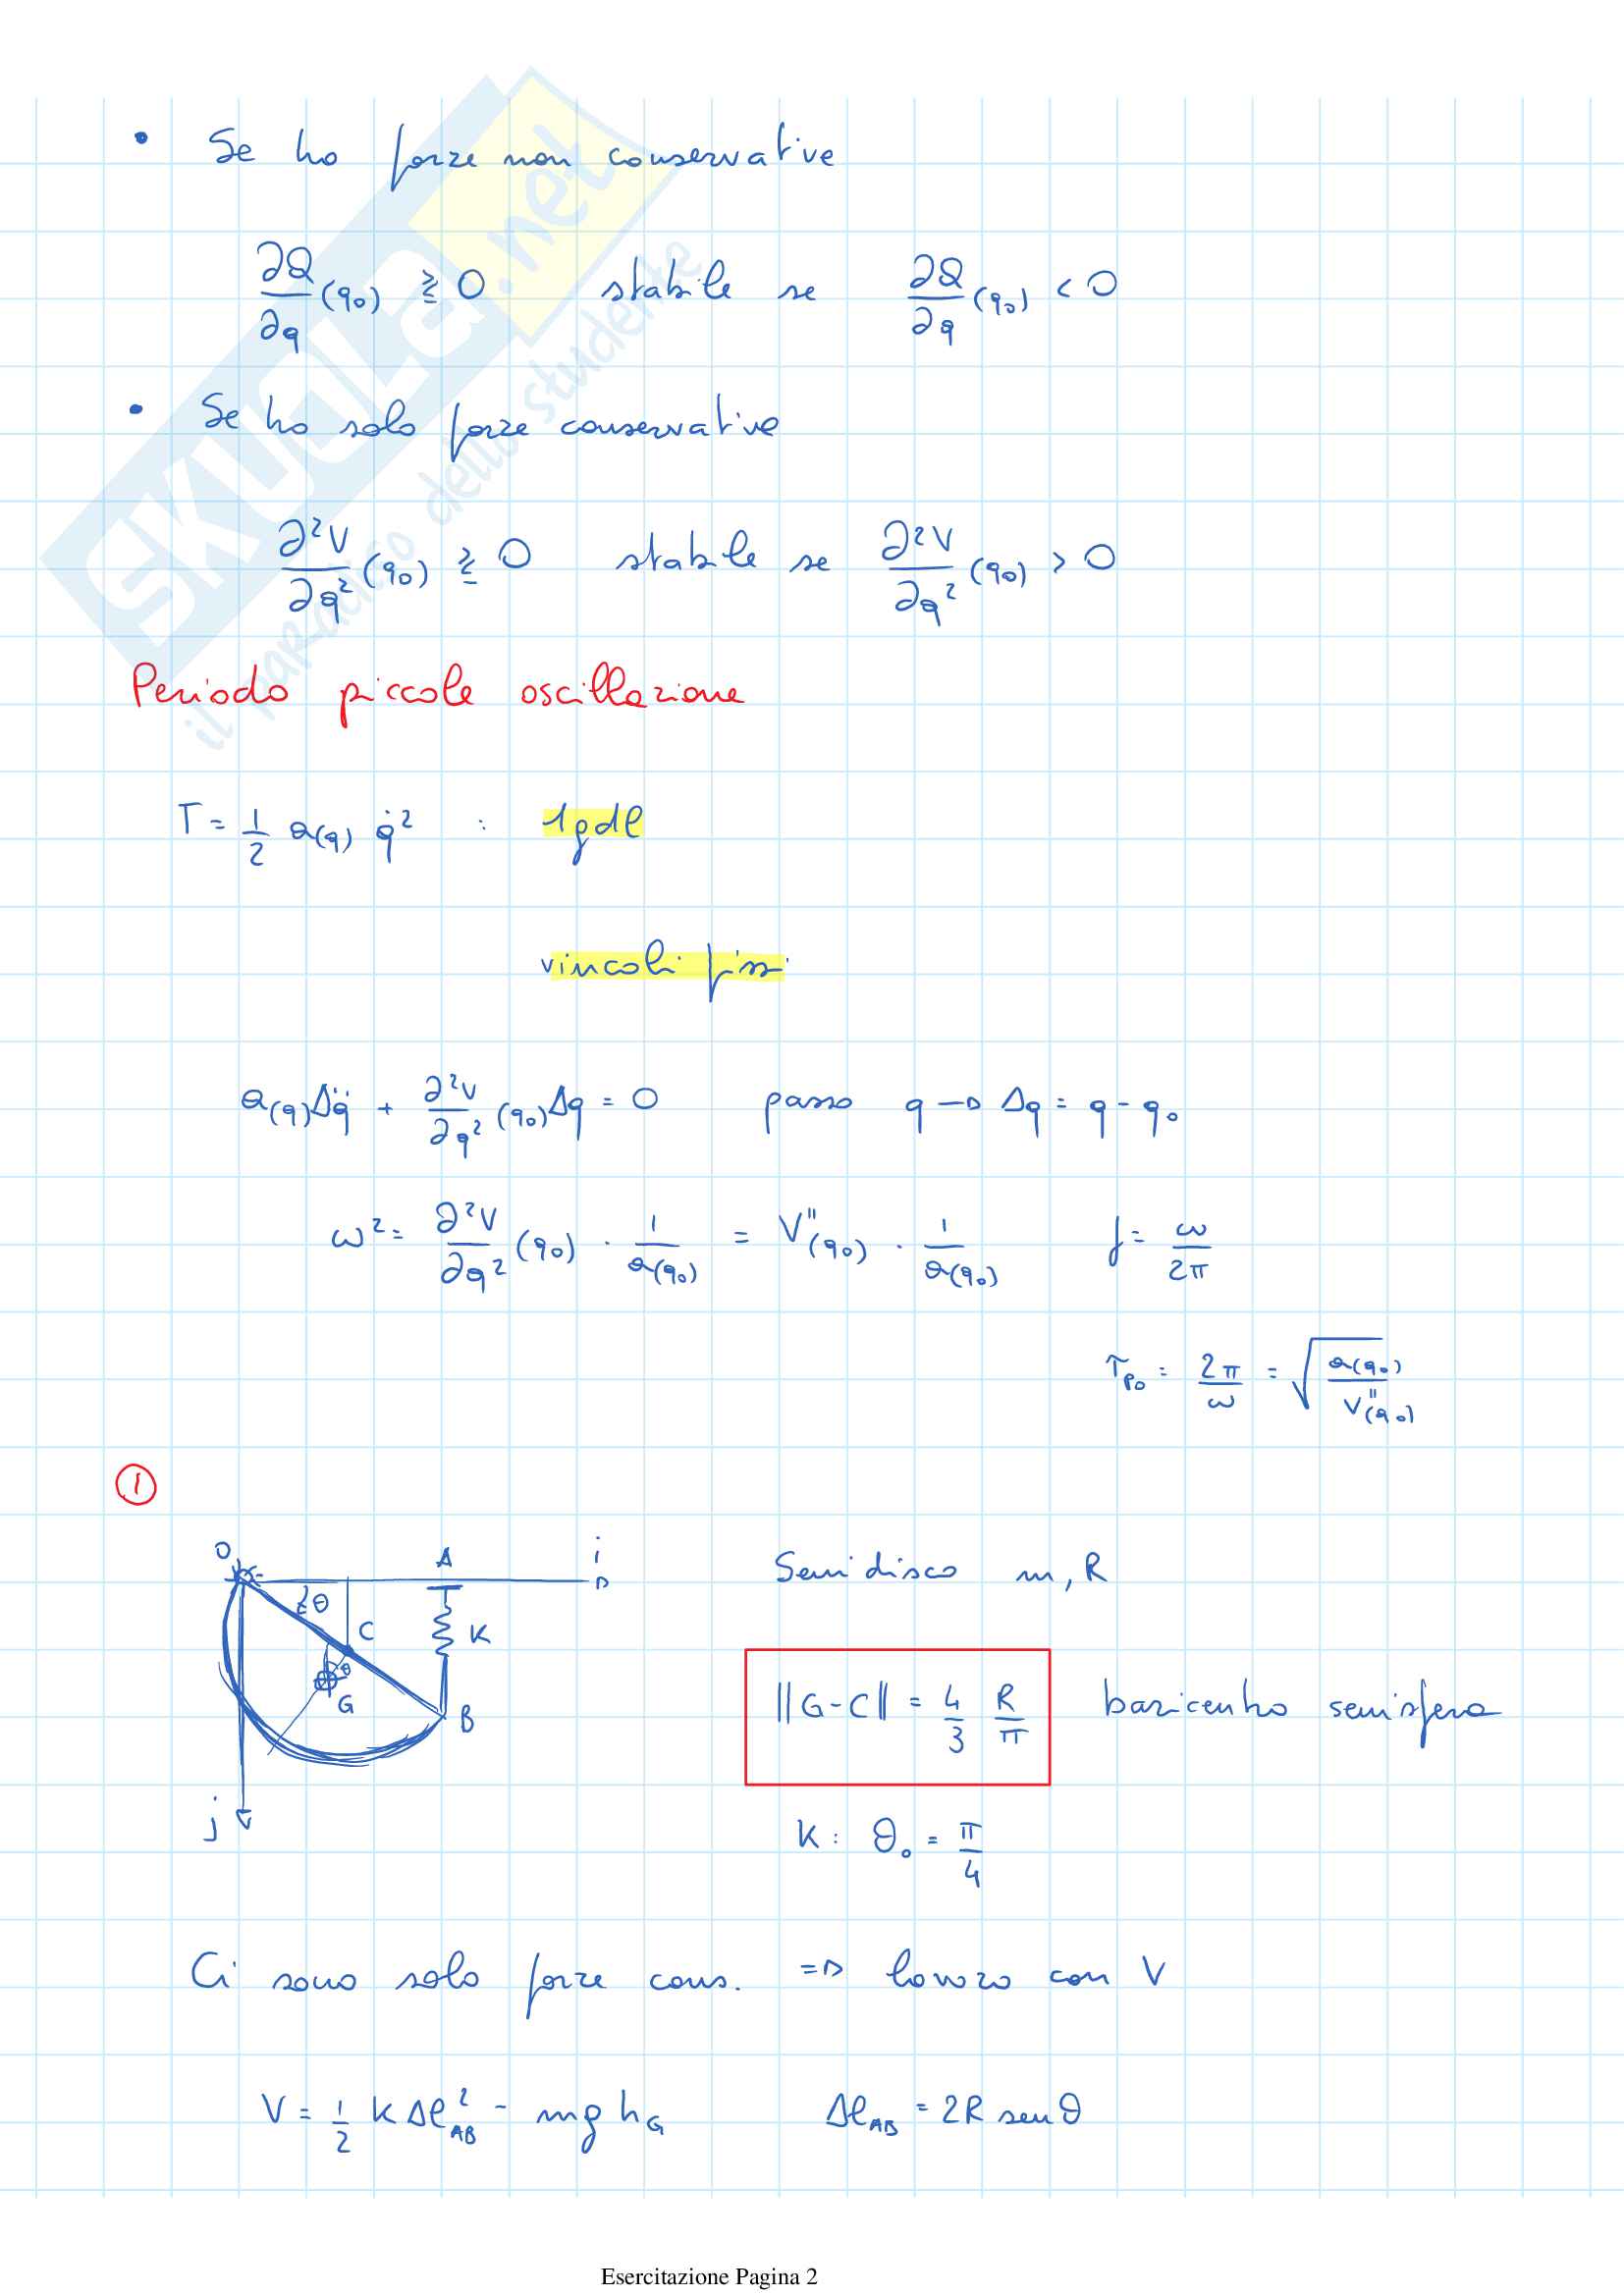 • Se ho forze non conservative
∂Q/∂q (q₀) ⋛ 0 stabile se ∂Q/∂q (q₀) < 0
• Se ho solo forze conservative
∂²V/∂q² (q₀) ⋛ 0 stabile se ∂²V/∂q² (q₀) > 0
Periodo piccole oscillazione
T = 1/2 a(q) q̇² : 1gdl
vincoli fissi
a(q)Δq̈ + ∂²V/∂q² (q₀)Δq = 0 passo q → Δq = q - q₀
ω² = ∂²V/∂q² (q₀) · 1/a(q₀) = V''(q₀) · 1/a(q₀) f = ω/2π
τ_po = 2π/ω = √(a(q₀)/V''(q₀))
①
O A i
θ
C K
θ
G B
j
Semidisco m, R
||G-C|| = 4/3 R/π baricentro semisfera
K : θ₀ = π/4
Ci sono solo forze cons. ⇒ lavoro con V
V = 1/2 K Δl²_AB - mg h_G Δl_AB = 2R senθ
Esercitazione Pagina 2
SKUOLA.net
il paradiso dello studente